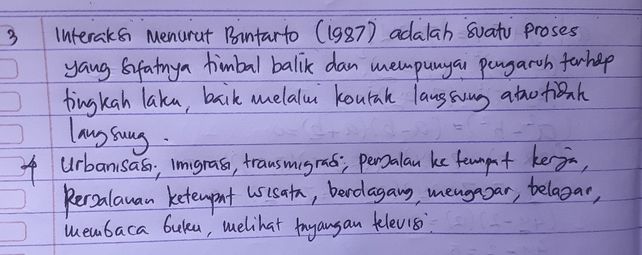 3 Interaksi Menurut Bintarto (1987) adalah suatu proses
yang sifatnya timbal balik dan mempunyai pengaruh terhdp
tingkah laku, baik melalui kontak langsung atau tidak
langsung.
4 Urbanisasi, imigrasi, transmigrasi, perjalan ke tempat kerja,
Perjalanan ketempat wisata, berdagang, mengajar, belajar,
membaca buku, melihat tayangan televisi.